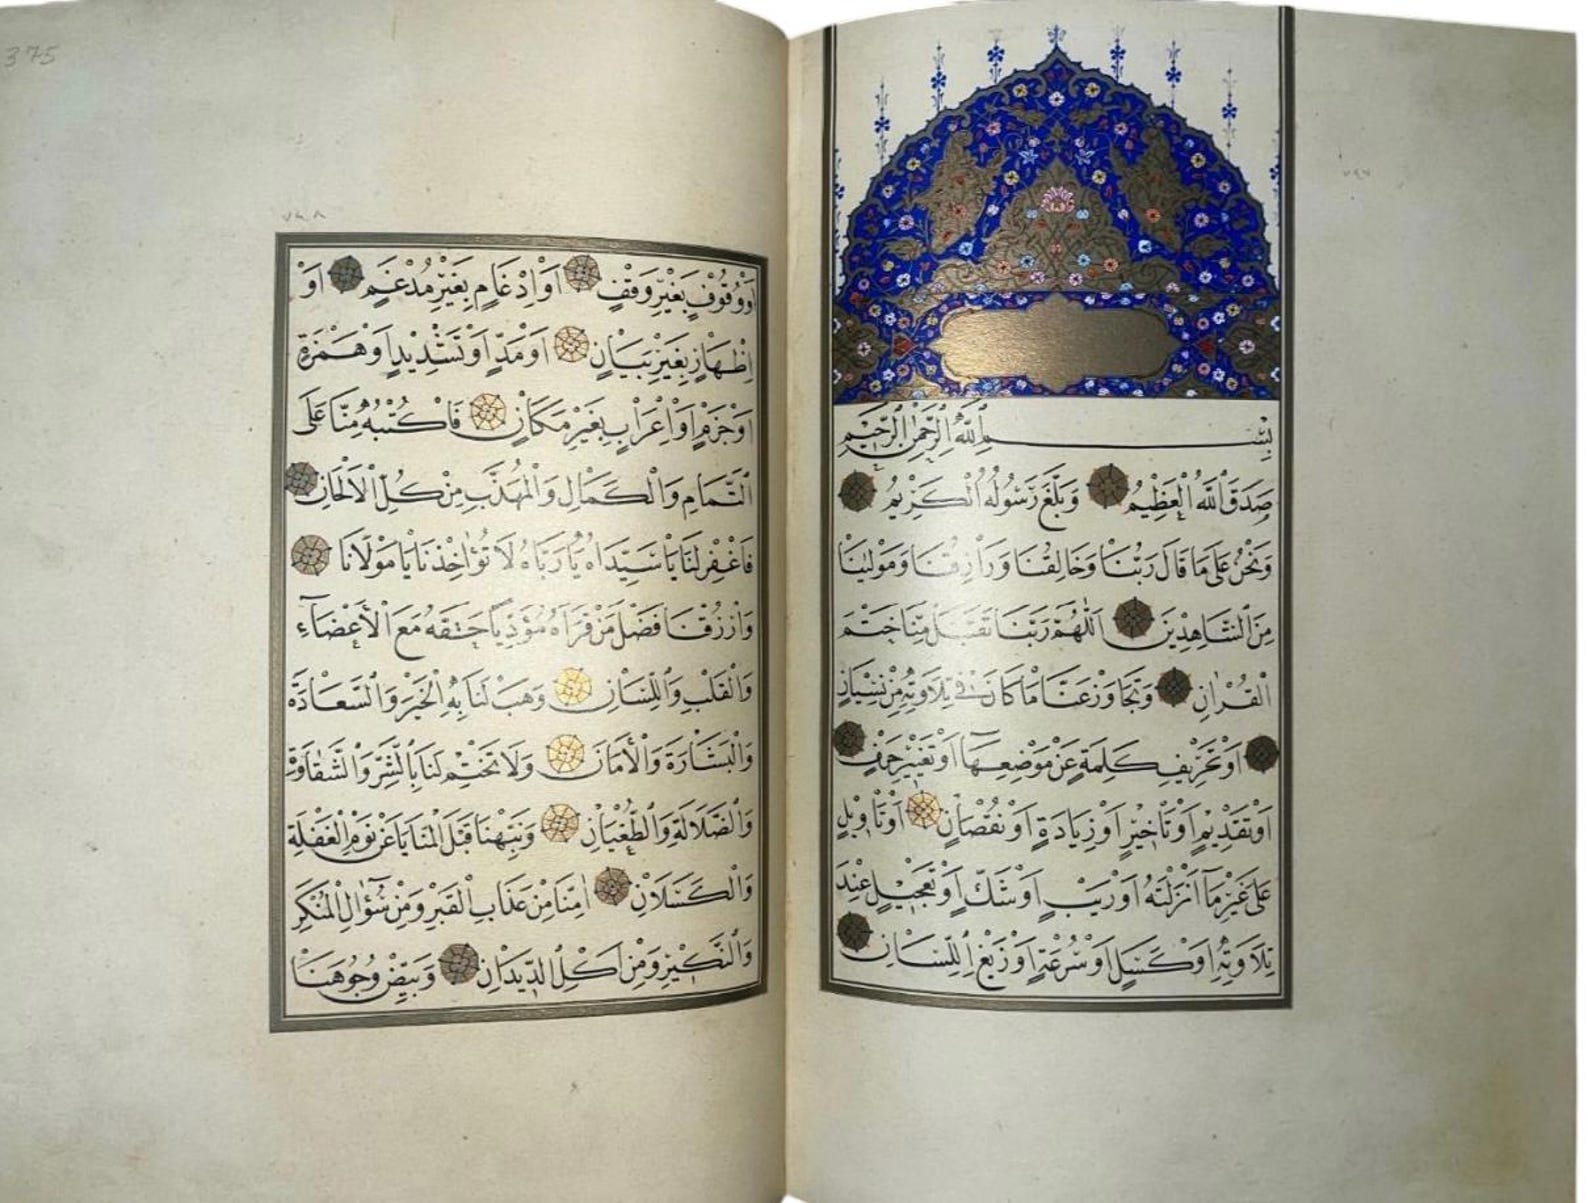 بِسْمِ اللّٰهِ الرَّحْمٰنِ الرَّحِيمِ
صَدَقَ اللّٰهُ الْعَظِيمُ وَبَلَّغَ رَسُولُهُ الْكَرِيمُ
وَنَحْنُ عَلَى مَا قَالَ رَبُّنَا وَخَالِقُنَا وَرَازِقُنَا وَمَوْلٰينَا
مِنَ الشَّاهِدِينَ اَللّٰهُمَّ رَبَّنَا تَقَبَّلْ مِنَّا خَتْمَ
الْقُرْاٰنِ وَتَجَاوَزْ عَنَّا مَا كَانَ فِي تِلَاوَتِهِ مِنْ نِسْيَانٍ
اَوْ تَحْرِيفِ كَلِمَةٍ عَنْ مَوْضِعِهَا اَوْ تَغْيِيرِ حَرْفٍ
اَوْ تَقْدِيمٍ اَوْ تَأْخِيرٍ اَوْ زِيَادَةٍ اَوْ نُقْصَانٍ اَوْ تَأْوِيلٍ
عَلَى غَيْرِ مَا اَنْزَلْتَهُ اَوْ رَيْبٍ اَوْ شَكٍّ اَوْ تَعْجِيلٍ عِنْدَ
تِلَاوَتِهِ اَوْ كَسَلٍ اَوْ سُرْعَةٍ اَوْ زَيْغِ اللِّسَانِ
375
٧٤٨
اَوْ وُقُوفٍ بِغَيْرِ وَقْفٍ اَوْ اِدْغَامٍ بِغَيْرِ مُدْغَمٍ اَوْ
اِظْهَارٍ بِغَيْرِ بَيَانٍ اَوْ مَدٍّ اَوْ تَشْدِيدٍ اَوْ هَمْزَةٍ
اَوْ جَزْمٍ اَوْ اِعْرَابٍ بِغَيْرِ مَكَانٍ فَاكْتُبْهُ مِنَّا عَلَى
التَّمَامِ وَالْكَمَالِ وَالْمُهَذَّبِ مِنْ كُلِّ الْاَلْحَانِ
فَاغْفِرْ لَنَا يَا سَيِّدَاهُ يَا رَبَّاهُ لَا تُؤَاخِذْنَا يَا مَوْلَانَا
وَارْزُقْنَا فَضْلَ مَنْ قَرَاَهُ مُؤَدِّيًا حَقَّهُ مَعَ الْاَعْضَاءِ
وَالْقَلْبِ وَاللِّسَانِ وَهَبْ لَنَا بِهِ الْخَيْرَ وَالسَّعَادَةَ
وَالْبَشَارَةَ وَالْاَمَانَ وَلَا تَخْتِمْ لَنَا بِالشَّرِّ وَالشَّقَاوَةِ
وَالضَّلَالَةِ وَالطُّغْيَانِ وَنَبِّهْنَا قَبْلَ الْمَنَايَا عَنْ نَوْمِ الْغَفْلَةِ
وَالْكَسْلَانِ اٰمِنَّا مِنْ عَذَابِ الْقَبْرِ وَمِنْ سُؤَالِ الْمُنْكَرِ
وَالنَّكِيرِ وَمِنْ اَكْلِ الدِّيدَانِ وَبَيِّضْ وُجُوهَنَا